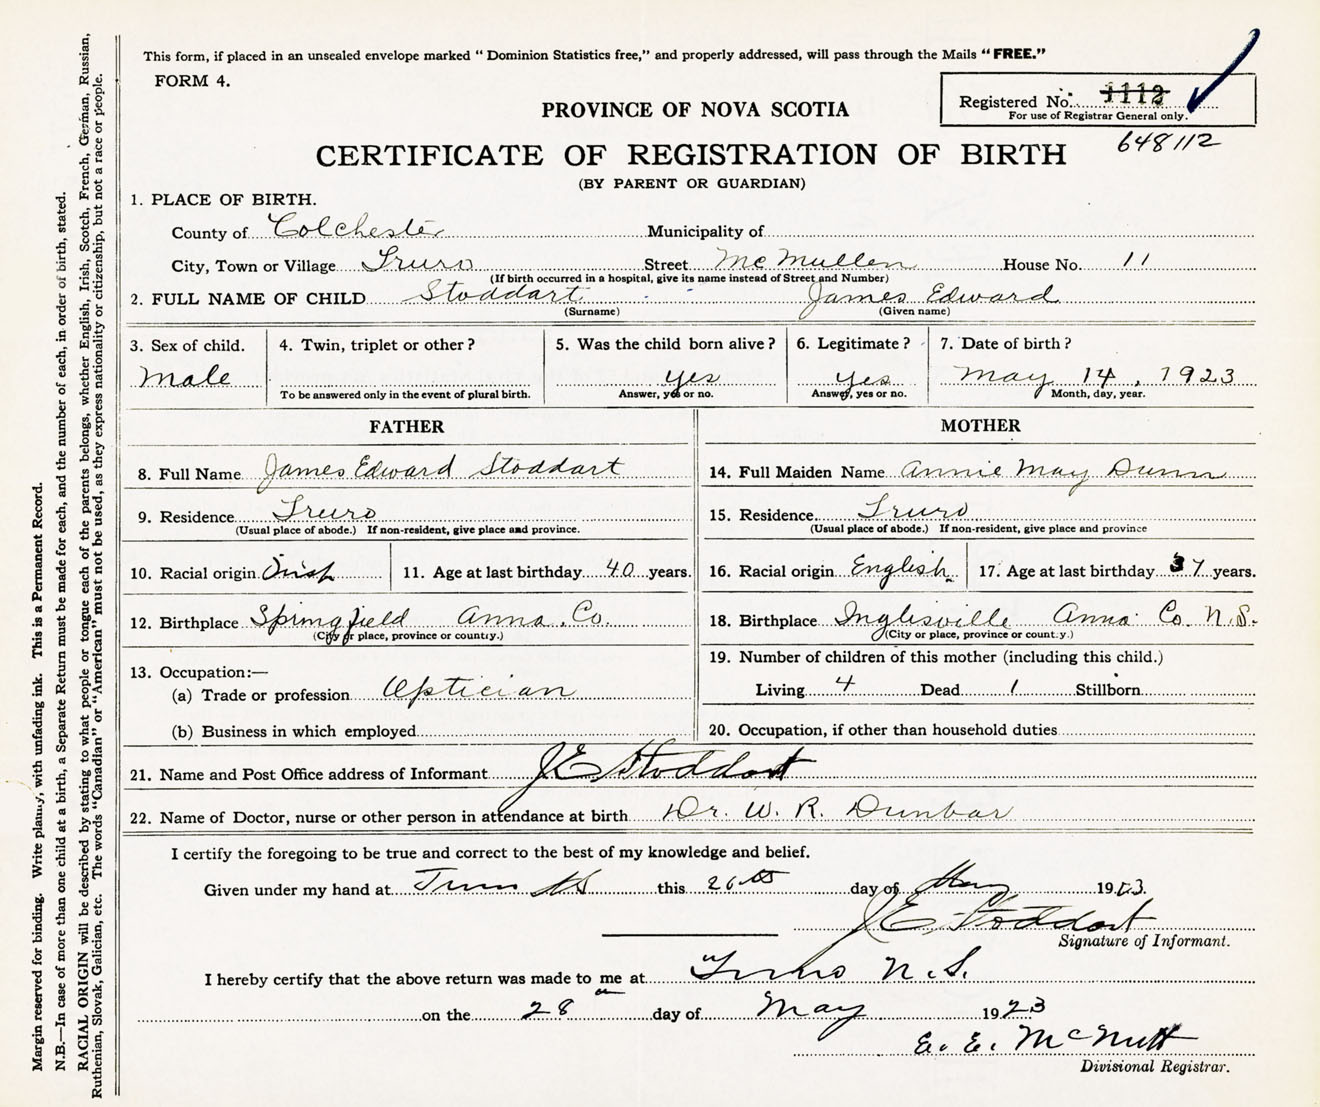 This form, if placed in an unsealed envelope marked “ Dominion Statistics free,” and properly addressed, will pass through the Mails “ FREE.”
FORM 4.
Registered No. 1112
For use of Registrar General only.
648112
PROVINCE OF NOVA SCOTIA
CERTIFICATE OF REGISTRATION OF BIRTH
(BY PARENT OR GUARDIAN)
1. PLACE OF BIRTH.
County of Colchester Municipality of
City, Town or Village Truro Street McMullen House No. 11
(If birth occurred in a hospital, give its name instead of Street and Number)
2. FULL NAME OF CHILD Stoddart James Edward
(Surname) (Given name)
3. Sex of child. 4. Twin, triplet or other? 5. Was the child born alive? 6. Legitimate? 7. Date of birth?
Male yes yes May 14, 1923
To be answered only in the event of plural birth. Answer, yes or no. Answer, yes or no. Month, day, year.
FATHER MOTHER
8. Full Name James Edward Stoddart 14. Full Maiden Name Annie May Dunn
9. Residence Truro 15. Residence Truro
(Usual place of abode.) If non-resident, give place and province. (Usual place of abode.) If non-resident, give place and province
10. Racial origin Irish 11. Age at last birthday 40 years. 16. Racial origin English 17. Age at last birthday 37 years.
12. Birthplace Springfield Anna. Co. 18. Birthplace Inglisville Anna Co. N.S.
(City or place, province or county.) (City or place, province or county.)
19. Number of children of this mother (including this child.)
13. Occupation:—
(a) Trade or profession Optician Living 4 Dead 1 Stillborn
(b) Business in which employed 20. Occupation, if other than household duties
21. Name and Post Office address of Informant J E Stoddart
22. Name of Doctor, nurse or other person in attendance at birth Dr. W. R. Dunbar
I certify the foregoing to be true and correct to the best of my knowledge and belief.
Given under my hand at Truro NS this 26th day of May 1923.
J E Stoddart
Signature of Informant.
I hereby certify that the above return was made to me at Truro N.S.
on the 28 day of May 1923
E. E. McNutt
Divisional Registrar.
Margin reserved for binding. Write plainly, with unfading ink. This is a Permanent Record.
N.B.—In case of more than one child at a birth, a Separate Return must be made for each, and the number of each, in order of birth, stated.
RACIAL ORIGIN will be described by stating to what people or tongue each of the parents belongs, whether English, Irish, Scotch, French, German, Russian,
Ruthenian, Slovak, Galician, etc. The words “Canadian” or “American” must not be used, as they express nationality or citizenship, but not a race or people.